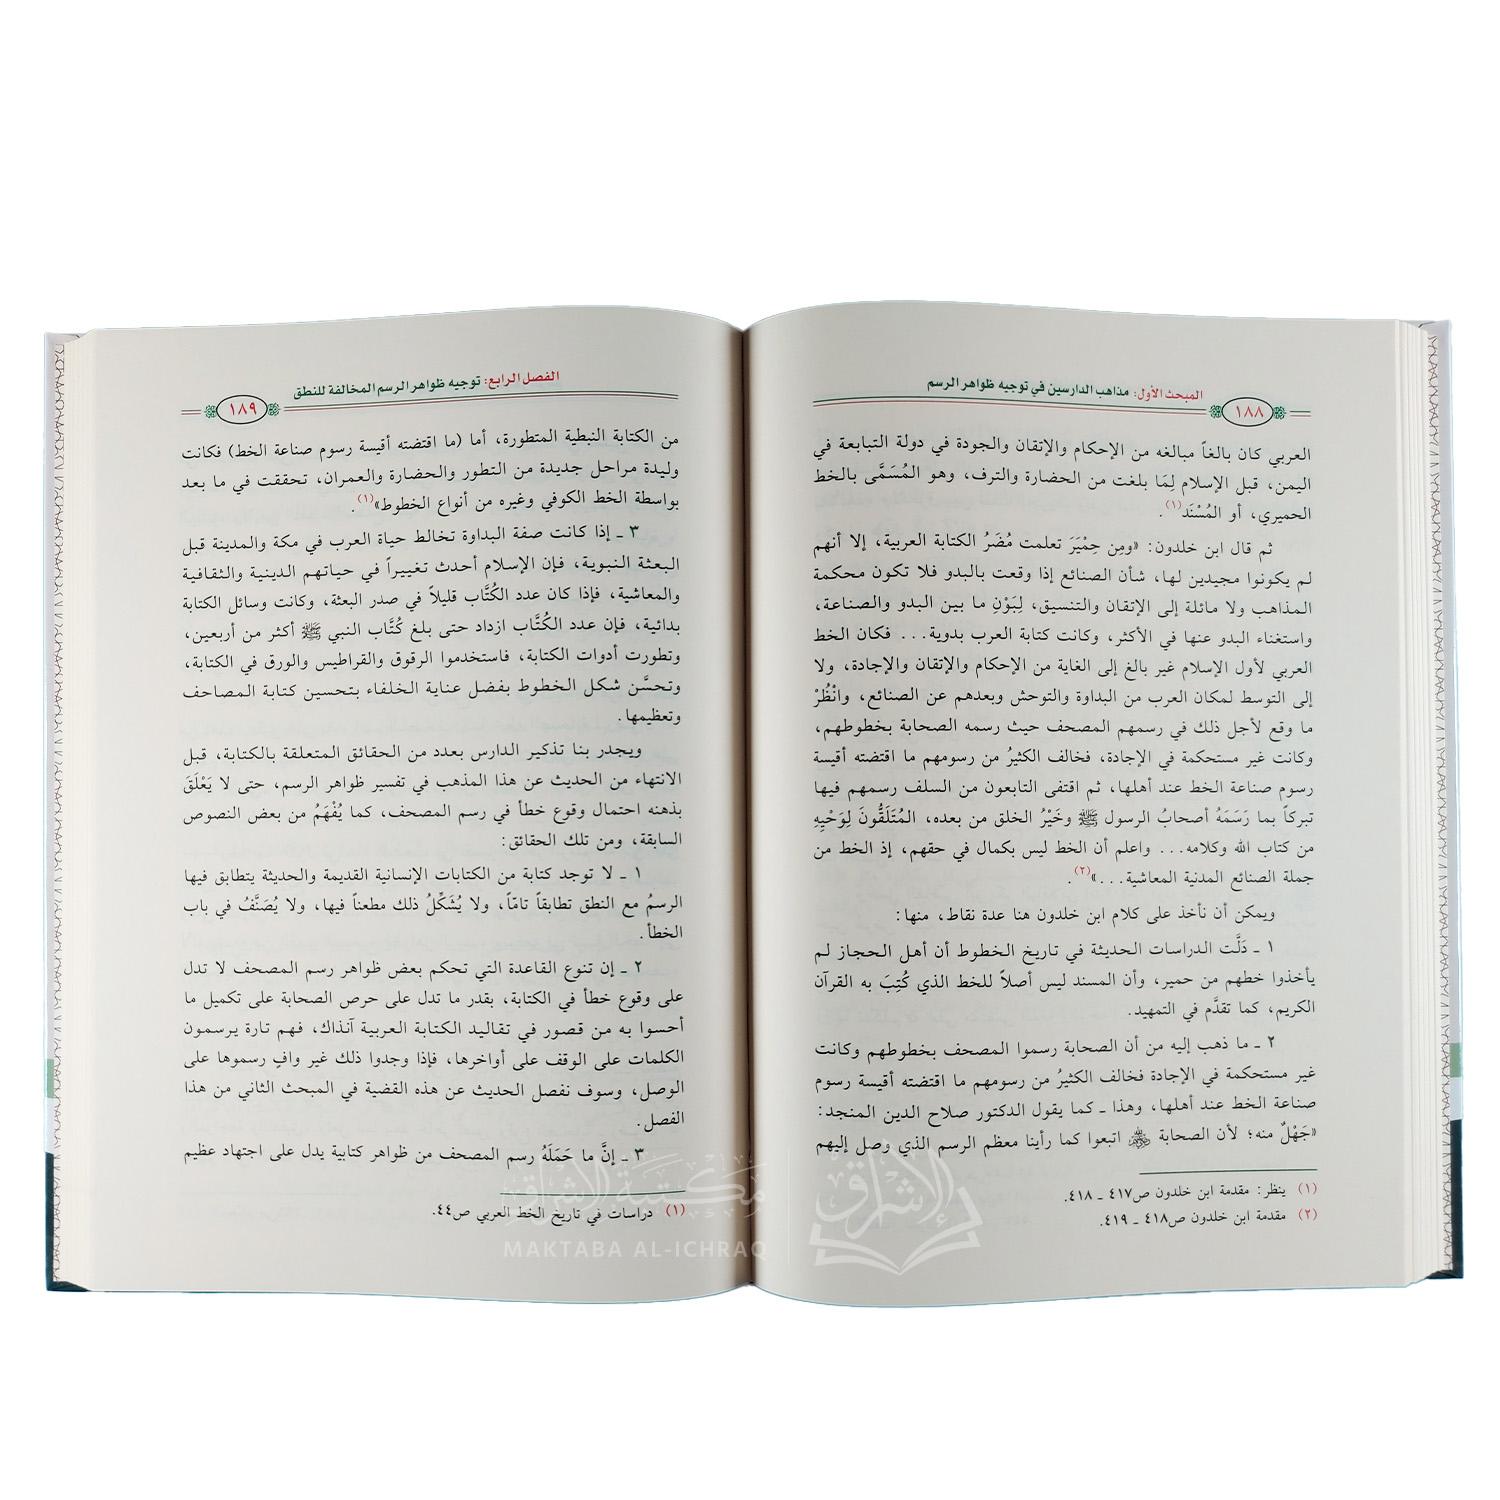 المبحث الأول: مذاهب الدارسين في توجيه ظواهر الرسم
١٨٨
العربي كان بالغاً مبالغه من الإحكام والإتقان والجودة في دولة التبابعة في
اليمن، قبل الإسلام لِمَا بلغت من الحضارة والترف، وهو المُسَمَّى بالخط
الحميري، أو المُسْنَد(١).
ثم قال ابن خلدون: «ومِن حِمْيَرَ تعلمت مُضَرُ الكتابة العربية، إلا أنهم
لم يكونوا مجيدين لها، شأن الصنائع إذا وقعت بالبدو فلا تكون محكمة
المذاهب ولا مائلة إلى الإتقان والتنسيق، لِبَوْنِ ما بين البدو والصناعة،
واستغناء البدو عنها في الأكثر، وكانت كتابة العرب بدوية... فكان الخط
العربي لأول الإسلام غير بالغ إلى الغاية من الإحكام والإتقان والإجادة، ولا
إلى التوسط لمكان العرب من البداوة والتوحش وبعدهم عن الصنائع، وانْظُرْ
ما وقع لأجل ذلك في رسمهم المصحف حيث رسمه الصحابة بخطوطهم،
وكانت غير مستحكمة في الإجادة، فخالف الكثيرُ من رسومهم ما اقتضته أقيسة
رسوم صناعة الخط عند أهلها، ثم اقتفى التابعون من السلف رسمهم فيها
تبركاً بما رَسَمَهُ أصحابُ الرسول ﷺ وخَيْرُ الخلق من بعده، المُتَلَقُّونَ لِوَحْيِهِ
من كتاب الله وكلامه... واعلم أن الخط ليس بكمال في حقهم، إذ الخط من
جملة الصنائع المدنية المعاشية...»(٢).
ويمكن أن نأخذ على كلام ابن خلدون هنا عدة نقاط، منها:
١ ـ دَلَّت الدراسات الحديثة في تاريخ الخطوط أن أهل الحجاز لم
يأخذوا خطهم من حمير، وأن المسند ليس أصلاً للخط الذي كُتِبَ به القرآن
الكريم، كما تقدَّم في التمهيد.
٢ ـ ما ذهب إليه من أن الصحابة رسموا المصحف بخطوطهم وكانت
غير مستحكمة في الإجادة فخالف الكثيرُ من رسومهم ما اقتضته أقيسة رسوم
صناعة الخط عند أهلها، وهذا ـ كما يقول الدكتور صلاح الدين المنجد:
«جَهْلٌ منه؛ لأن الصحابة اتبعوا كما رأينا معظم الرسم الذي وصل إليهم
(١) ينظر: مقدمة ابن خلدون ص٤١٧ ـ ٤١٨.
(٢) مقدمة ابن خلدون ص٤١٨ ـ ٤١٩.
الفصل الرابع: توجيه ظواهر الرسم المخالفة للنطق
١٨٩
من الكتابة النبطية المتطورة، أما (ما اقتضته أقيسة رسوم صناعة الخط) فكانت
وليدة مراحل جديدة من التطور والحضارة والعمران، تحققت في ما بعد
بواسطة الخط الكوفي وغيره من أنواع الخطوط»(١).
٣ ـ إذا كانت صفة البداوة تخالط حياة العرب في مكة والمدينة قبل
البعثة النبوية، فإن الإسلام أحدث تغييراً في حياتهم الدينية والثقافية
والمعاشية، فإذا كان عدد الكُتَّاب قليلاً في صدر البعثة، وكانت وسائل الكتابة
بدائية، فإن عدد الكُتَّاب ازداد حتى بلغ كُتَّاب النبي ﷺ أكثر من أربعين،
وتطورت أدوات الكتابة، فاستخدموا الرقوق والقراطيس والورق في الكتابة،
وتحسَّن شكل الخطوط بفضل عناية الخلفاء بتحسين كتابة المصاحف
وتعظيمها.
ويجدر بنا تذكير الدارس بعدد من الحقائق المتعلقة بالكتابة، قبل
الانتهاء من الحديث عن هذا المذهب في تفسير ظواهر الرسم، حتى لا يَعْلَقَ
بذهنه احتمال وقوع خطأ في رسم المصحف، كما يُفْهَمُ من بعض النصوص
السابقة، ومن تلك الحقائق:
١ ـ لا توجد كتابة من الكتابات الإنسانية القديمة والحديثة يتطابق فيها
الرسمُ مع النطق تطابقاً تامّاً، ولا يُشَكِّلُ ذلك مطعناً فيها، ولا يُصَنَّفُ في باب
الخطأ.
٢ ـ إن تنوع القاعدة التي تحكم بعض ظواهر رسم المصحف لا تدل
على وقوع خطأ في الكتابة، بقدر ما تدل على حرص الصحابة على تكميل ما
أحسوا به من قصور في تقاليد الكتابة العربية آنذاك، فهم تارة يرسمون
الكلمات على الوقف على أواخرها، فإذا وجدوا ذلك غير وافٍ رسموها على
الوصل، وسوف نفصل الحديث عن هذه القضية في المبحث الثاني من هذا
الفصل.
٣ ـ إنَّ ما حَمَلَهُ رسم المصحف من ظواهر كتابية يدل على اجتهاد عظيم
(١) دراسات في تاريخ الخط العربي ص٤٤.
مكتبة الإشراق
MAKTABA AL-ICHRAQ
الإشراق